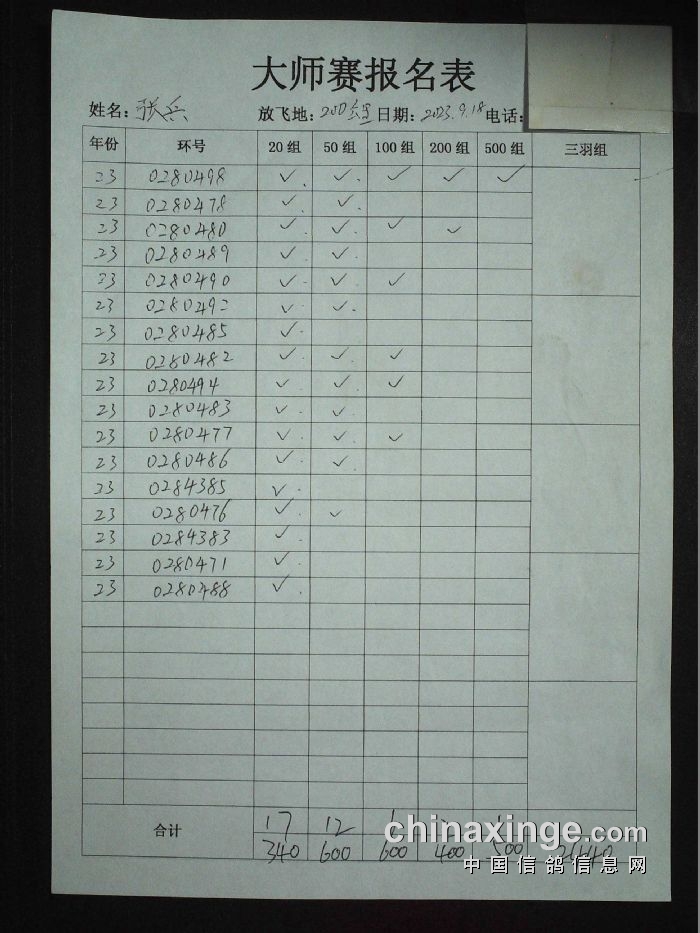 大师赛报名表
姓名：张兵 放飞地：200公里 日期：2023.9.18 电话：
年份 环号 20组 50组 100组 200组 500组 三羽组
23 0280498 ✓ ✓ ✓ ✓ ✓
23 0280478 ✓ ✓
23 0280480 ✓ ✓ ✓ ✓
23 0280489 ✓ ✓
23 0280490 ✓ ✓ ✓
23 0280492 ✓ ✓
23 0280485 ✓
23 0280482 ✓ ✓ ✓
23 0280494 ✓ ✓ ✓
23 0280483 ✓ ✓
23 0280477 ✓ ✓ ✓
23 0280486 ✓ ✓
23 0284385 ✓
23 0280476 ✓ ✓
23 0284383 ✓
23 0280471 ✓
23 0280488 ✓
合计 17 12
340 600 600 400 500
chinaxinge.com
中国信鸽信息网